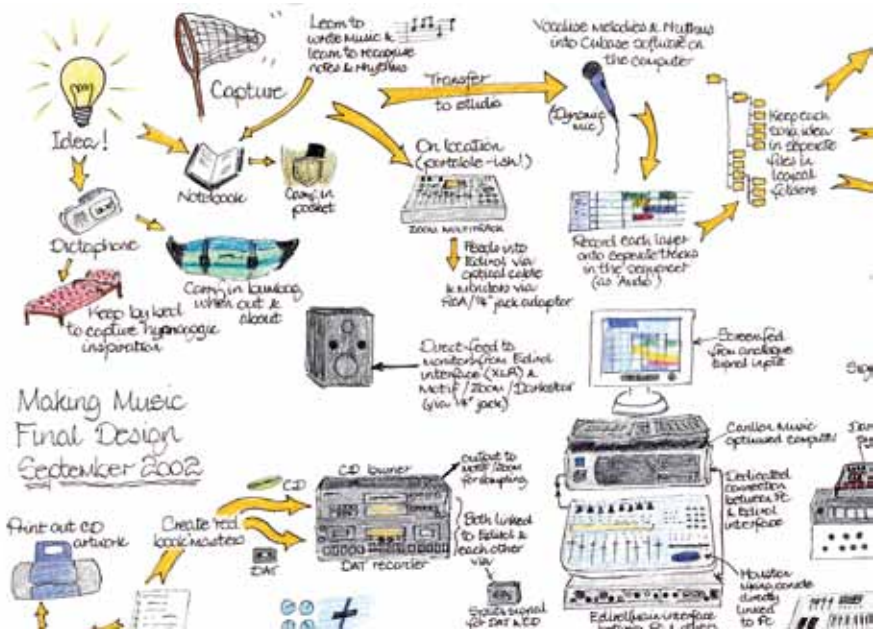 Idea!
Capture
Learn to
write Music &
learn to recognise
notes & rhythms
Transfer
to studio
Vocalise Melodies & Rhythms
into Cubase software on
the computer
(Dynamic
mic)
Keep each
song idea
in separate
files in
logical
folders
Notebook
Carry in
pocket
On location
(portable-ish!)
ZOOM MULTITRACK
Feeds into
Edirol via
optical cable
& monitors via
RCA/¼" jack adaptor
Record each layer
onto separate tracks
in the sequencer
(as 'Audio')
Dictaphone
Carry in bumbag
when out &
about
Keep by bed
to capture hypnagogic
inspiration
Direct feed to
monitors from Edirol
interface (XLR) &
Motif/Zoom/Darkstar
(via ¼" jack)
Screen fed
from analogue
signal input
Making Music
Final Design
September 2002
Carillon Music
optimised computer
Dedicated
connection
between PC
& Edirol
interface
CD burner
output to
Motif/Zoom
for sampling
CD
Create red
book masters
DAT
DAT recorder
Both linked
to Edirol &
each other
via
Print out CD
artwork
Splits signal
for DAT & CD
Houston
mixing console
directly
linked
to PC
Edirol main interface
between PC & others